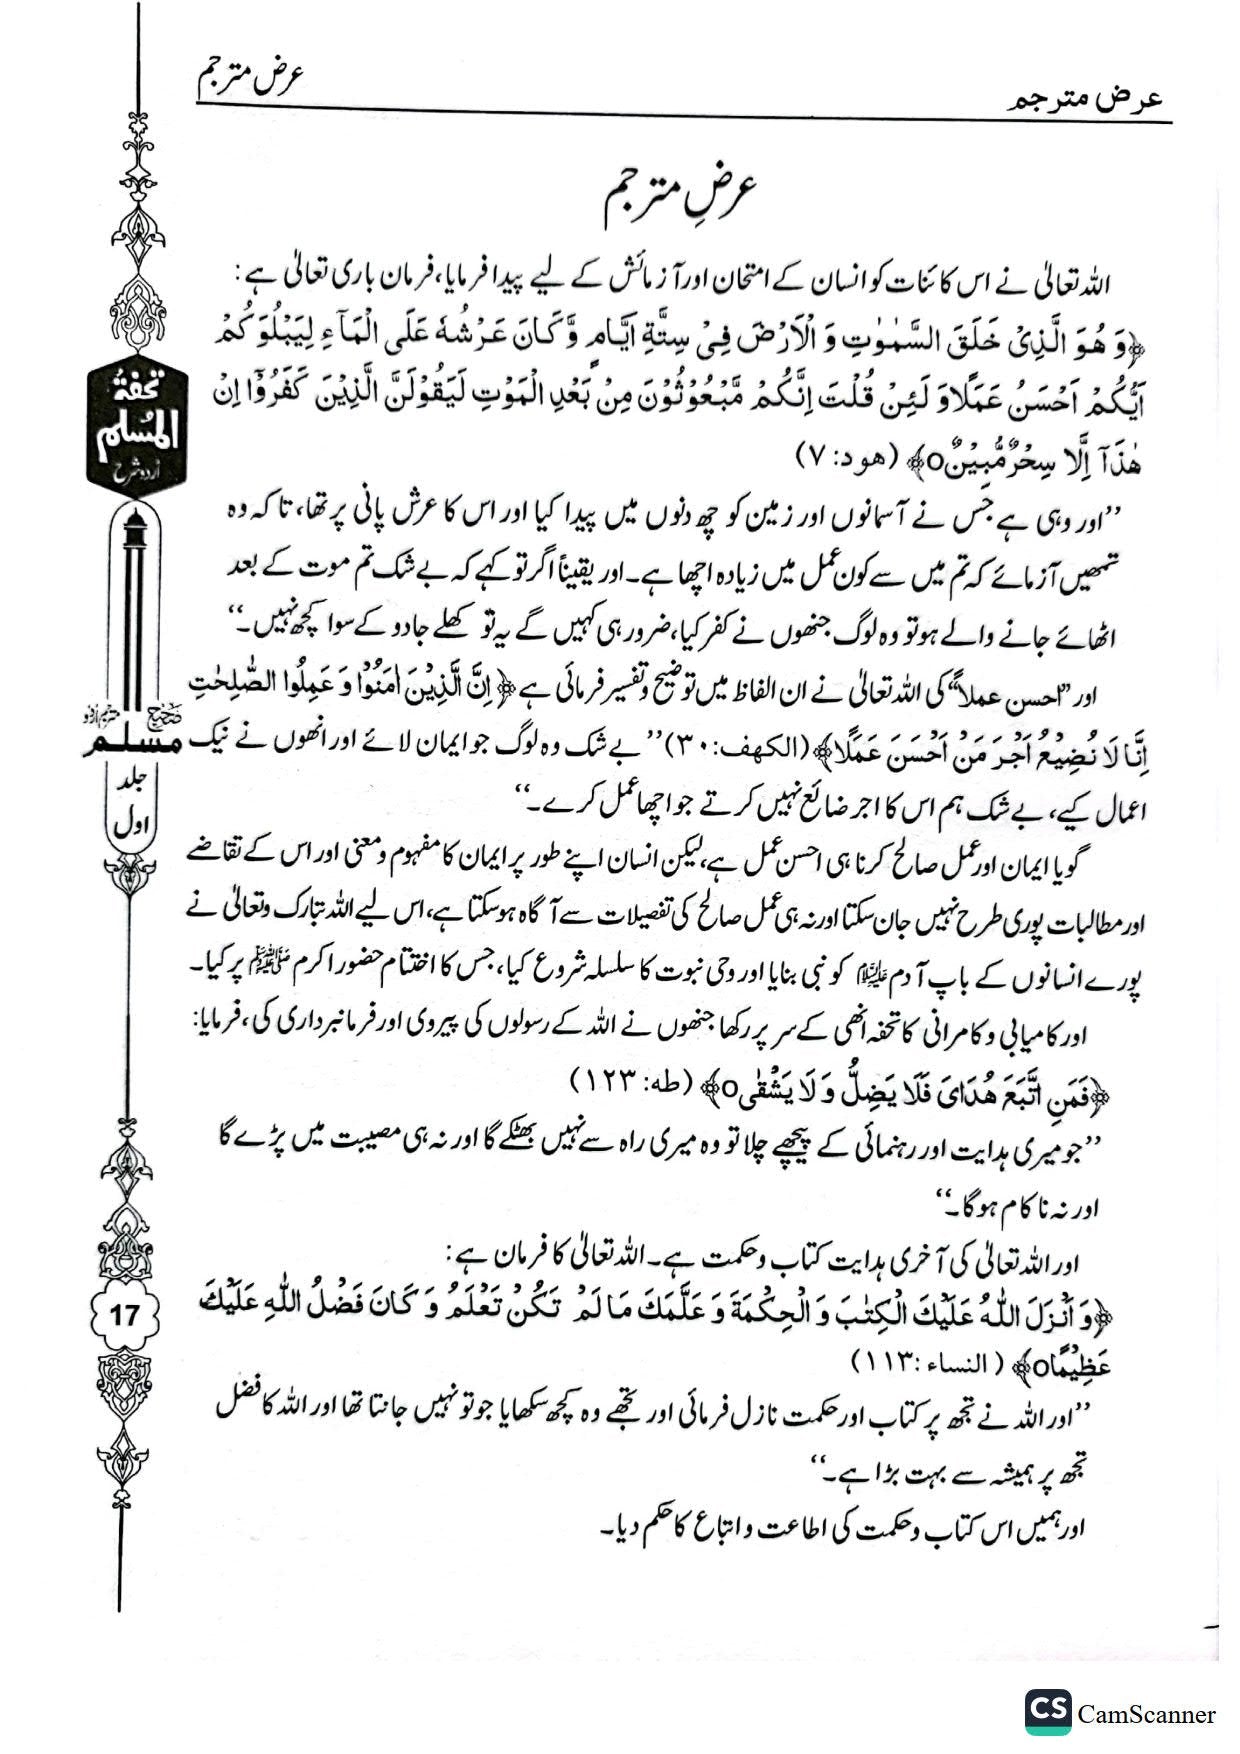 عرض مترجم
عرض مترجم
عرضِ مترجم
اللہ تعالیٰ نے اس کائنات کو انسان کے امتحان اور آزمائش کے لیے پیدا فرمایا، فرمان باری تعالیٰ ہے:
﴿وَ هُوَ الَّذِیْ خَلَقَ السَّمٰوٰتِ وَ الْاَرْضَ فِیْ سِتَّةِ اَیَّامٍ وَّ كَانَ عَرْشُهٗ عَلَی الْمَآءِ لِیَبْلُوَكُمْ
اَیُّكُمْ اَحْسَنُ عَمَلًا وَ لَئِنْ قُلْتَ اِنَّكُمْ مَّبْعُوْثُوْنَ مِنْ بَعْدِ الْمَوْتِ لَیَقُوْلَنَّ الَّذِیْنَ كَفَرُوْٓا اِنْ
هٰذَآ اِلَّا سِحْرٌ مُّبِیْنٌo﴾ (هود: ٧)
’’اور وہی ہے جس نے آسمانوں اور زمین کو چھ دنوں میں پیدا کیا اور اس کا عرش پانی پر تھا، تاکہ وہ
تمھیں آزمائے کہ تم میں سے کون عمل میں زیادہ اچھا ہے۔ اور یقیناً اگر تو کہے کہ بے شک تم موت کے بعد
اٹھائے جانے والے ہو تو وہ لوگ جنھوں نے کفر کیا، ضرور ہی کہیں گے یہ تو کھلے جادو کے سوا کچھ نہیں۔‘‘
اور ”احسن عملاً“ کی اللہ تعالیٰ نے ان الفاظ میں توضیح و تفسیر فرمائی ہے ﴿اِنَّ الَّذِیْنَ اٰمَنُوْا وَ عَمِلُوا الصّٰلِحٰتِ
اِنَّا لَا نُضِیْعُ اَجْرَ مَنْ اَحْسَنَ عَمَلًا﴾ (الكهف: ٣٠) ’’بے شک وہ لوگ جو ایمان لائے اور انھوں نے نیک
اعمال کیے، بے شک ہم اس کا اجر ضائع نہیں کرتے جو اچھا عمل کرے۔‘‘
گویا ایمان اور عمل صالح کرنا ہی احسن عمل ہے، لیکن انسان اپنے طور پر ایمان کا مفہوم و معنی اور اس کے تقاضے
اور مطالبات پوری طرح نہیں جان سکتا اور نہ ہی عمل صالح کی تفصیلات سے آگاہ ہو سکتا ہے، اس لیے اللہ تبارک و تعالیٰ نے
پورے انسانوں کے باپ آدم علیہ السلام کو نبی بنایا اور وحی نبوت کا سلسلہ شروع کیا، جس کا اختتام حضور اکرم ﷺ پر کیا۔
اور کامیابی و کامرانی کا تحفہ انھی کے سر پر رکھا جنھوں نے اللہ کے رسولوں کی پیروی اور فرمانبرداری کی، فرمایا:
﴿فَمَنِ اتَّبَعَ هُدَایَ فَلَا یَضِلُّ وَ لَا یَشْقٰیo﴾ (طه: ١٢٣)
’’جو میری ہدایت اور رہنمائی کے پیچھے چلا تو وہ میری راہ سے نہیں بھٹکے گا اور نہ ہی مصیبت میں پڑے گا
اور نہ ناکام ہوگا۔‘‘
اور اللہ تعالیٰ کی آخری ہدایت کتاب و حکمت ہے۔ اللہ تعالیٰ کا فرمان ہے:
﴿وَ اَنْزَلَ اللّٰهُ عَلَیْكَ الْكِتٰبَ وَ الْحِكْمَةَ وَ عَلَّمَكَ مَا لَمْ تَكُنْ تَعْلَمُ وَ كَانَ فَضْلُ اللّٰهِ عَلَیْكَ
عَظِیْمًاo﴾ (النساء: ١١٣)
’’اور اللہ نے تجھ پر کتاب اور حکمت نازل فرمائی اور تجھے وہ کچھ سکھایا جو تو نہیں جانتا تھا اور اللہ کا فضل
تجھ پر ہمیشہ سے بہت بڑا ہے۔‘‘
اور ہمیں اس کتاب و حکمت کی اطاعت و اتباع کا حکم دیا۔
تحفۃ
المسلم
اردو شرح
صحیح
مسلم
مترجم اردو
جلد
اول
17
CS CamScanner